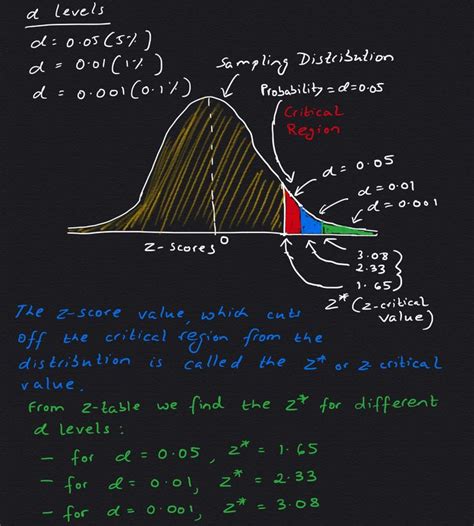 α levels
α = 0.05 (5%)
α = 0.01 (1%)
α = 0.001 (0.1%)
Sampling Distribution
Probability = α = 0.05
Critical
Region
α = 0.05
α = 0.01
α = 0.001
z-scores
0
3.08
2.33
1.65
z* (z-critical
value)
The z-score value, which cuts
off the critical region from the
distribution is called the z* or z critical
value.
From z-table we find the z* for different
α levels :
- for α = 0.05 , z* = 1.65
- for α = 0.01, z* = 2.33
- for α = 0.001, z* = 3.08